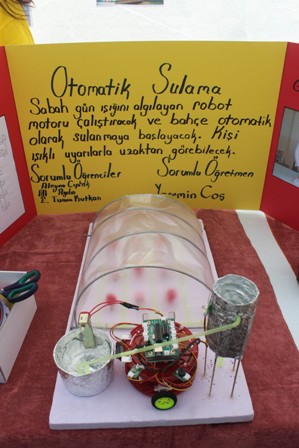 Otomatik Sulama
Sabah gün ışığını algılayan robot
motoru çalıştıracak ve bahçe otomatik
olarak sulanmaya başlayacak. Kişi
ışıklı uyarılarla uzaktan görebilecek.
Sorumlu Öğrenciler Sorumlu Öğretmen
Yasemin Coş